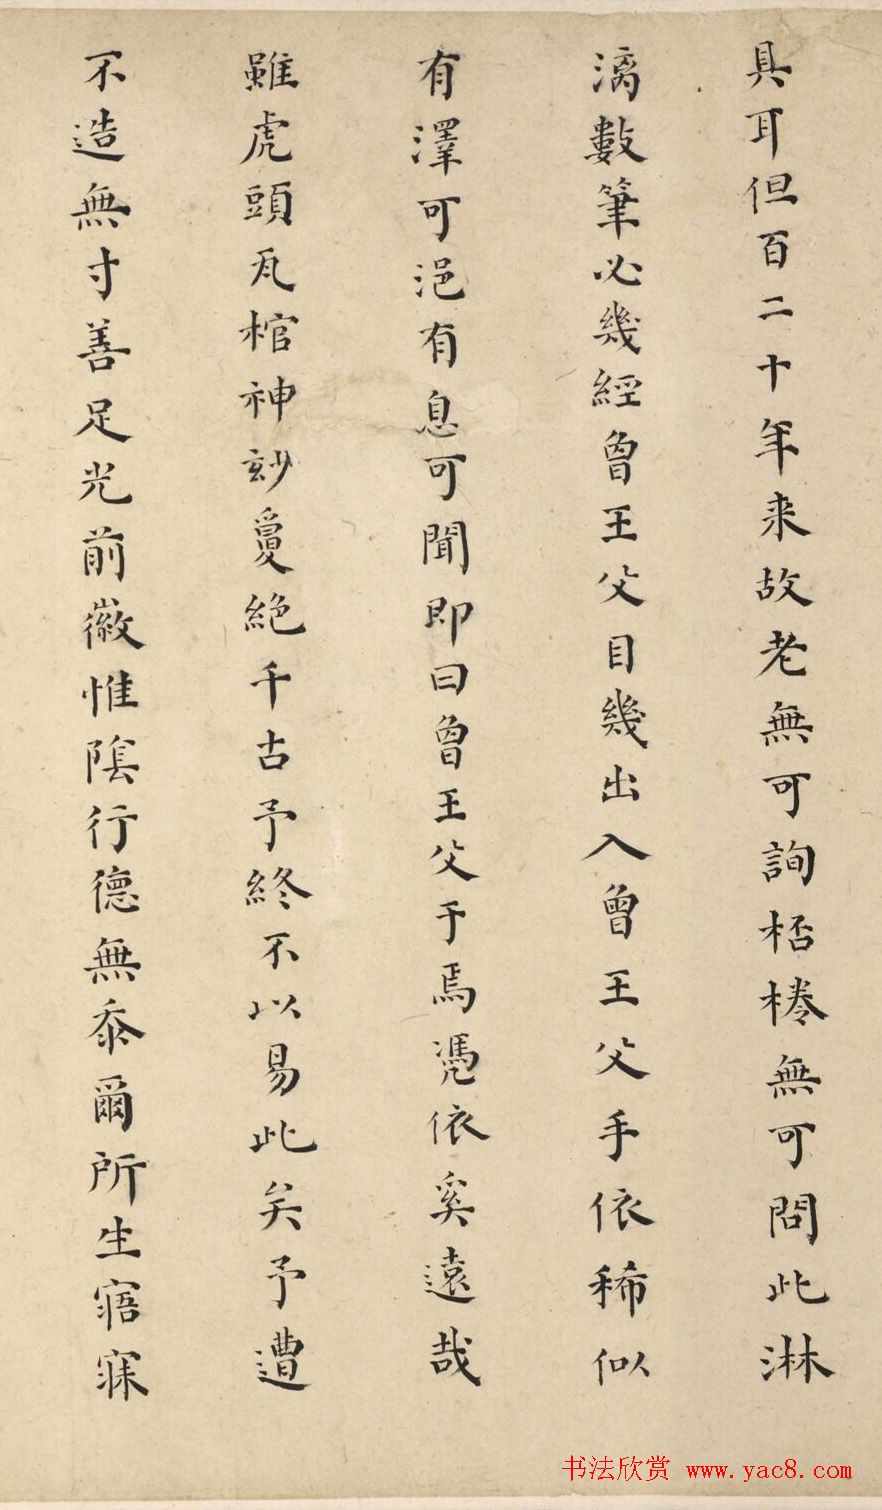 具耳但百二十年来故老無可詢桮棬無可問此淋
漓數筆必幾經曾王父目幾出入曾王父手依稀似
有澤可浥有息可聞即曰曾王父于焉憑依奚遠哉
雖虎頭瓦棺神妙敻絕千古予終不以易此矣予遭
不造無寸善足光前徽惟陰行德無忝爾所生寤寐
书法欣赏 www.yac8.com